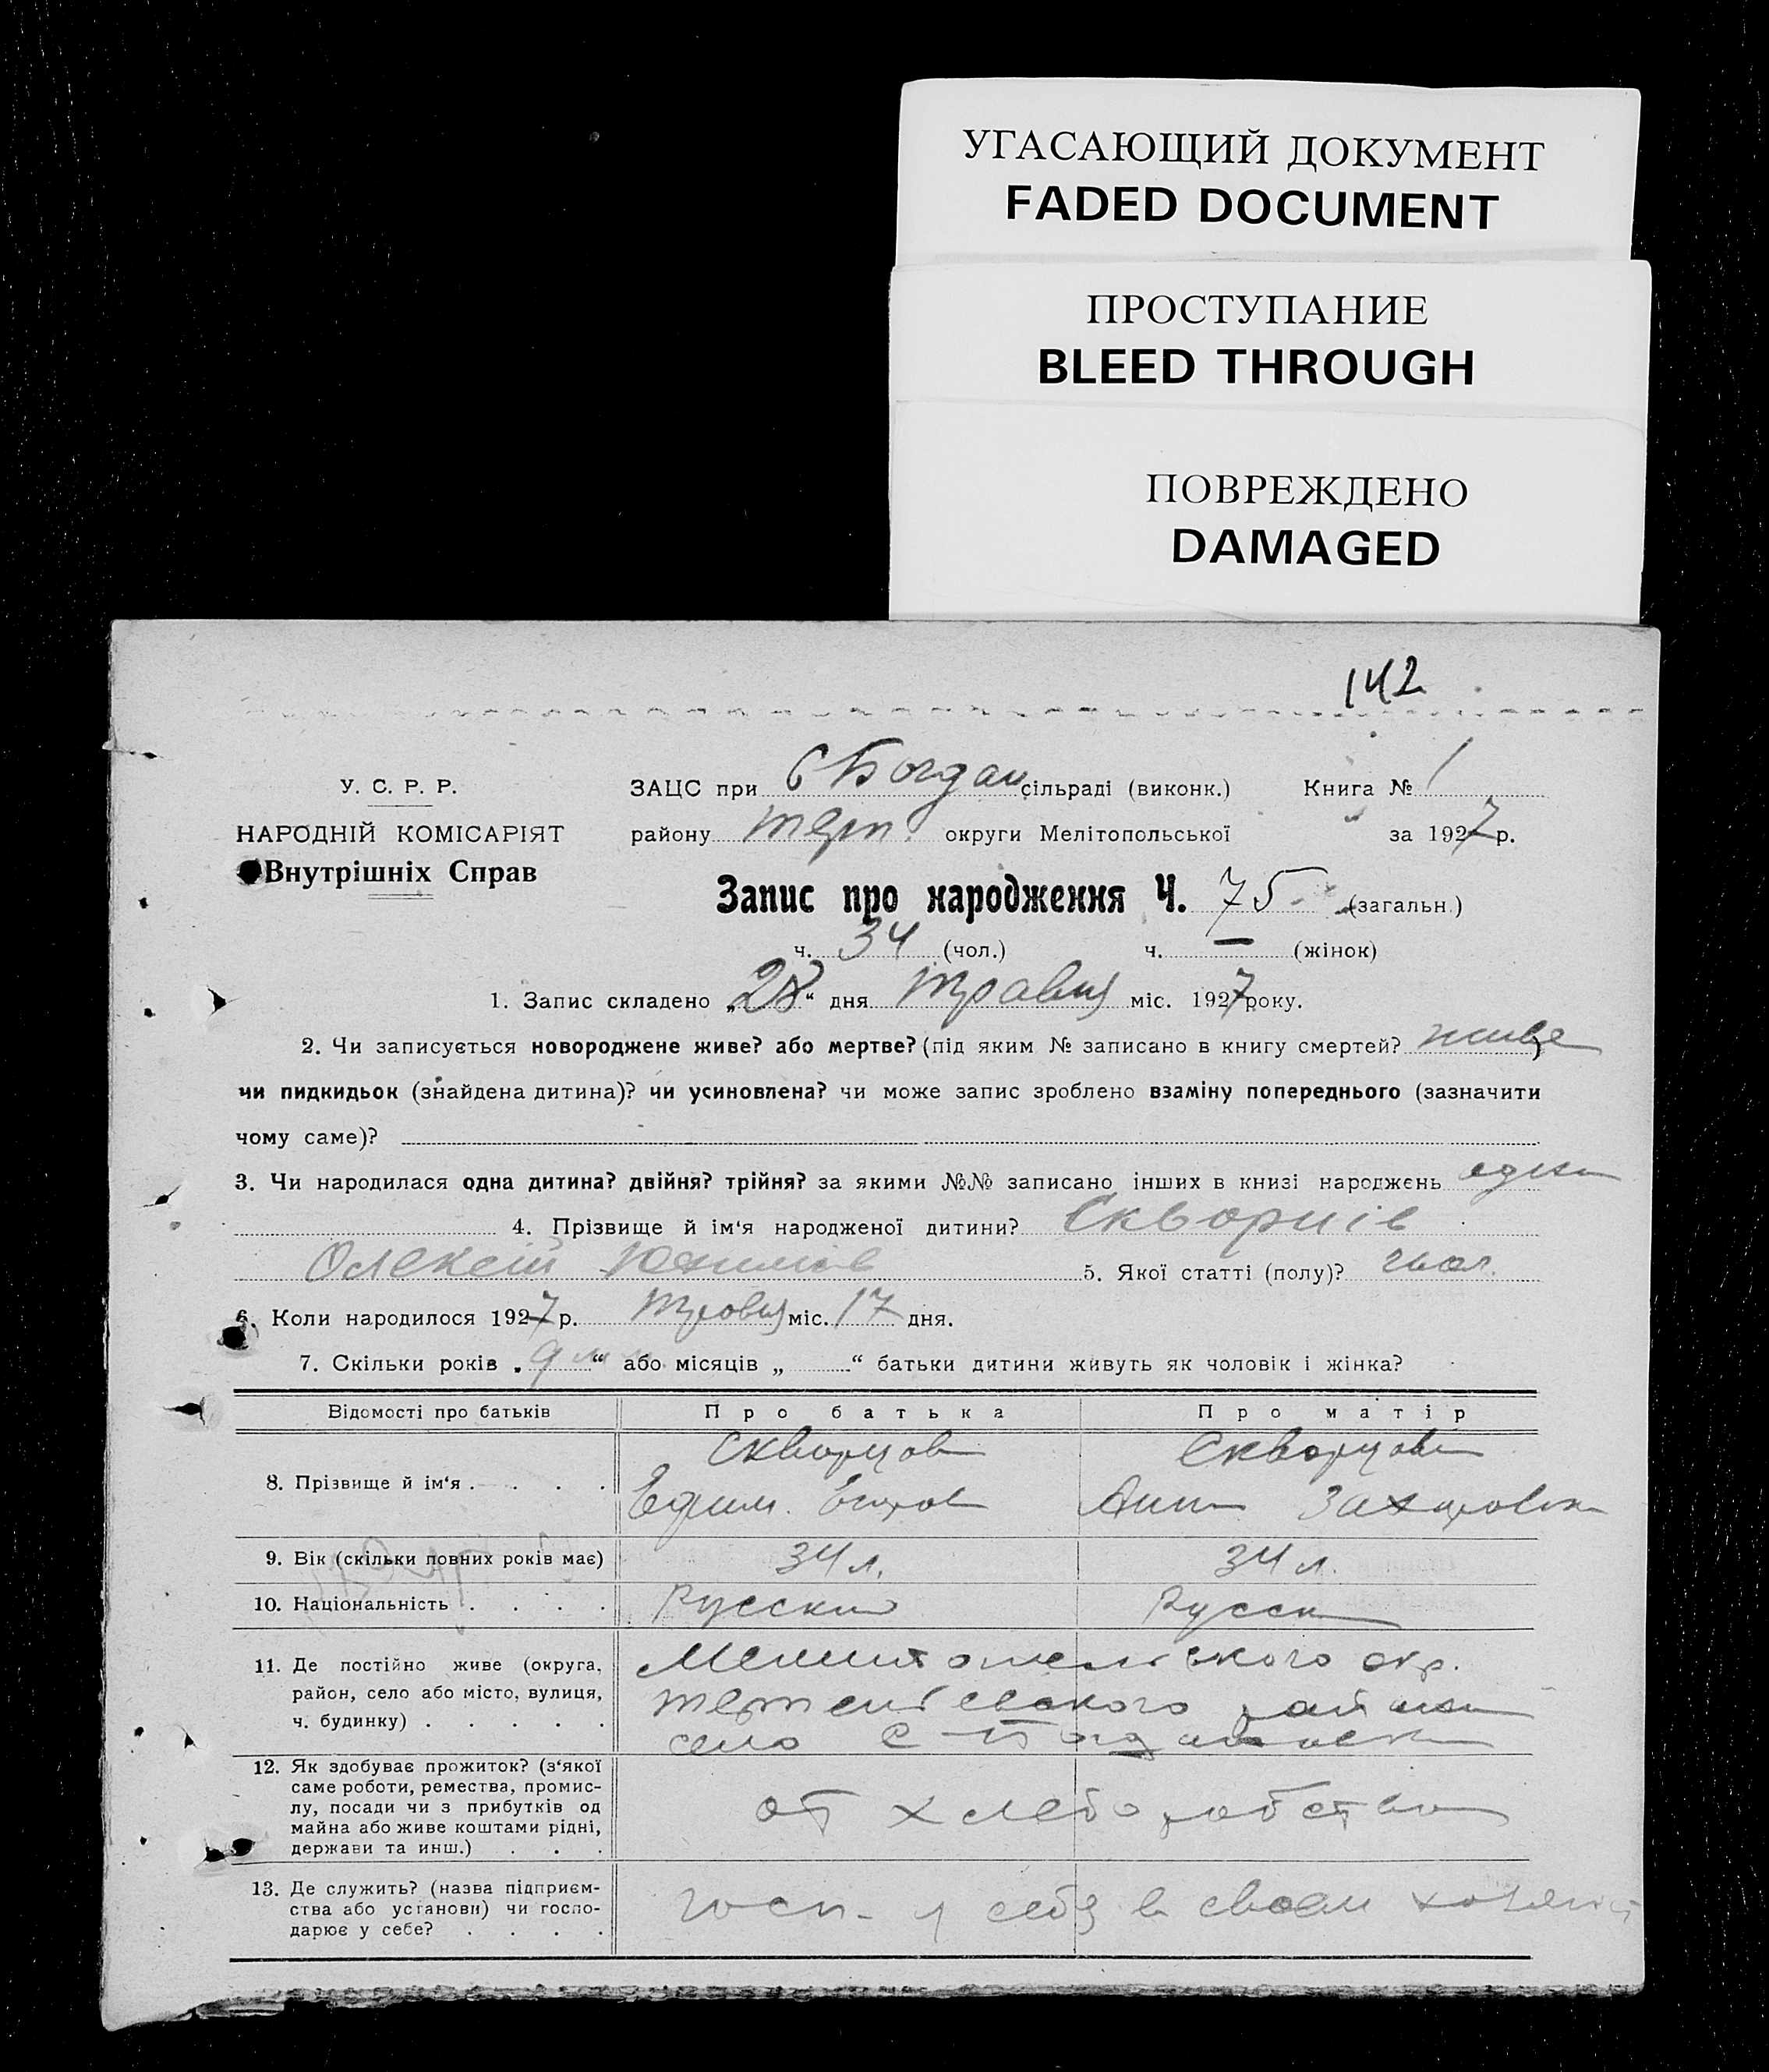 УГАСАЮЩИЙ ДОКУМЕНТ
FADED DOCUMENT
ПРОСТУПАНИЕ
BLEED THROUGH
ПОВРЕЖДЕНО
DAMAGED
142
У. С. Р. Р.
НАРОДНІЙ КОМІСАРІЯТ
Внутрішніх Справ
ЗАЦС при С Богдан сільраді (виконк.) Книга № 1
району Терп. округи Мелітопольської за 1927 р.
Запис про народження Ч. 75 (загальн.)
ч. 34 (чол.) ч. — (жінок)
1. Запис складено „28“ дня Травня міс. 1927 року.
2. Чи записується новороджене живе? або мертве? (під яким № записано в книгу смертей? живе
чи пидкидьок (знайдена дитина)? чи усиновлена? чи може запис зроблено взаміну попереднього (зазначити
чому саме)?
3. Чи народилася одна дитина? двійня? трійня? за якими №№ записано інших в книзі народжень одна
4. Прізвище й ім‘я народженої дитини? Скворців
Олексій Юхимов 5. Якої статті (полу)? чол.
6. Коли народилося 1927 р. Травня міс. 17 дня.
7. Скільки років „9“ або місяців „ “ батьки дитини живуть як чоловік і жінка?
Відомості про батьків Про батька Про матір
8. Прізвище й ім‘я . . . . Скворцов Скворцова
Ефим. Егоров Анна Захаровна
9. Вік (скільки повних років має) 34 л. 34 л.
10. Національність . . . . Русский Русск
11. Де постійно живе (округа, район, село або місто, вулиця, ч. будинку) . . . . .
Мелитопольского окр.
Терпеньевского района
село С-Богдановка
12. Як здобуває прожиток? (з‘якої
саме роботи, ремества, промис-
лу, посади чи з прибутків од
майна або живе коштами рідні,
держави та инш.) . . .
от хлеборобства
13. Де служить? (назва підприєм-
ства або установи) чи госпо-
дарює у себе? . . . .
госп- у себя в своем